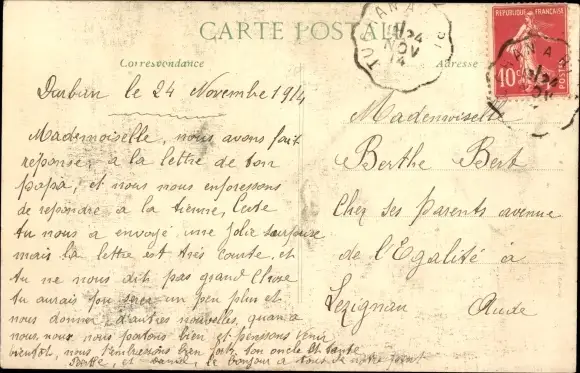 CARTE POSTALE
Correspondance
Adresse
REPUBLIQUE FRANÇAISE
10c
POSTES
TUCHAN A
24
NOV
14
Durban le 24 Novembre 1914
Mademoiselle, nous avons fait
reponse a la lettre de ton
papa, et nous nous enpressons
de repondre a la tienne,
tu nous a envoyé une jolie
mais la lettre est très courte, et
tu ne nous dit pas grand chose
tu aurais pu un peu plus et
nous donner d'autres nouvelles, quan a
nous, nous nous portons bien et pensons venir
bientot, nous t'embrassons bien fort, ton oncle et tante
Berthe, et le bonjour a tous de notre
Mademoiselle
Berthe Bert
Chez ses parents avenue
de l'Egalité à
Lezignan Aude